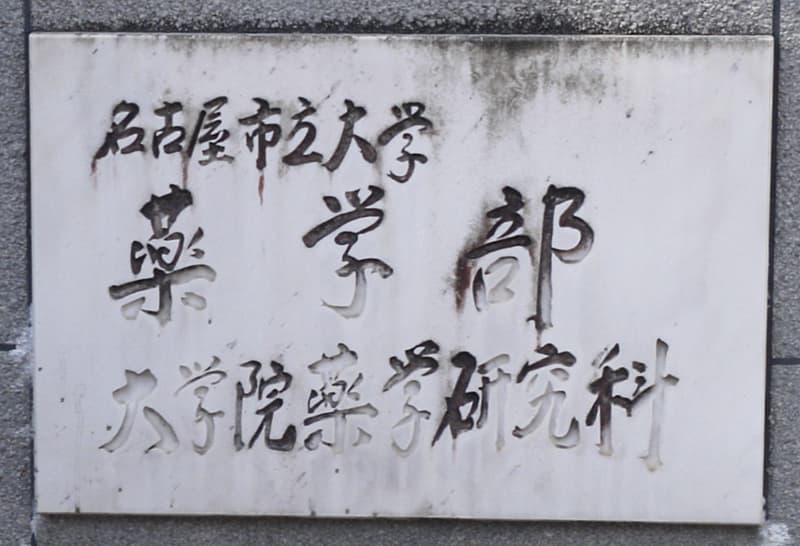 名古屋市立大学
薬学部
大学院薬学研究科